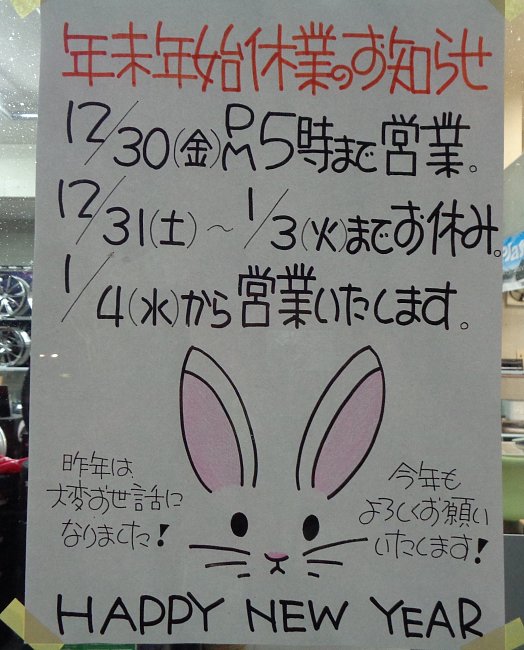 年末年始休業のお知らせ
12/30(金)PM5時まで営業。
12/31(土)~1/3(火)までお休み。
1/4(水)から営業いたします。
昨年は
大変お世話に
なりました!
今年も
よろしくお願い
いたします!
HAPPY NEW YEAR